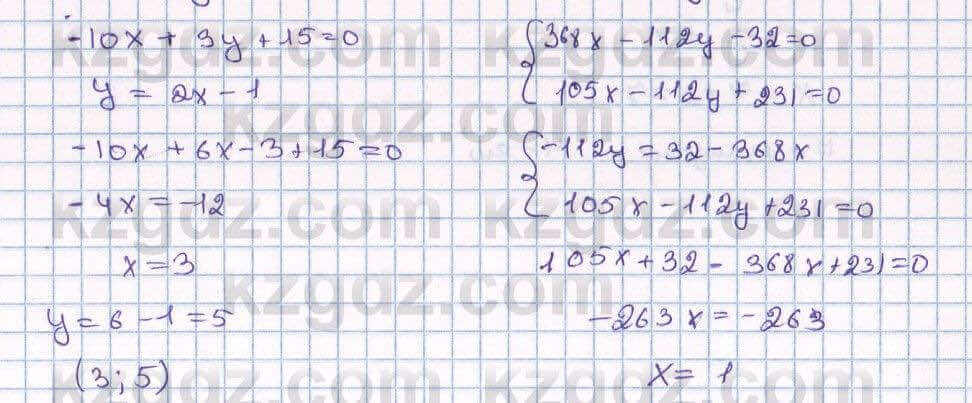 -10x + 3y + 15 = 0
y = 2x - 1
-10x + 6x - 3 + 15 = 0
-4x = -12
x = 3
y = 6 - 1 = 5
(3; 5)
{ 368x - 112y - 32 = 0
105x - 112y + 231 = 0
{ -112y = 32 - 368x
105x - 112y + 231 = 0
105x + 32 - 368x + 231 = 0
-263x = -263
x = 1
kzgdz.com
kzgdz.com
kzgdz.com
kzgdz.com
kzgdz.com
kzgdz.com
kzgdz.com
kzgdz.com
kzgdz.com